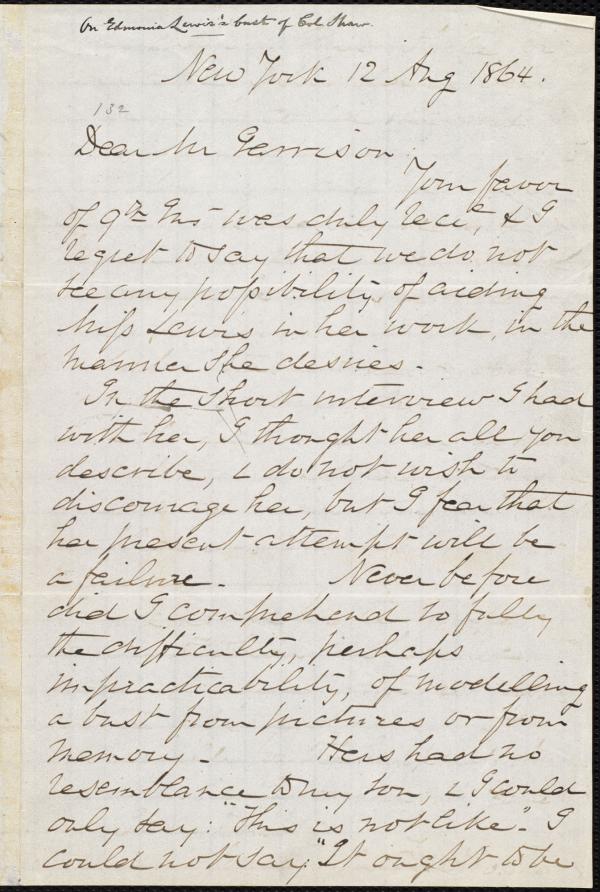 On Edmonia Lewis's bust of Col Shaw.
New York 12 Aug 1864.
132
Dear Mr Garrison,
Your favor
of 9th Inst was duly recd, & I
regret to say that we do not
see any possibility of aiding
Miss Lewis in her work, in the
manner she desires.
In the short interview I had
with her, I thought her all you
describe, & do not wish to
discourage her, but I fear that
her present attempt will be
a failure. Never before
did I comprehend so fully
the difficulty, perhaps
impracticability, of modelling
a bust from pictures or from
memory. Hers had no
resemblance to my son, & I could
only say: "This is not like". I
could not say "It ought to be